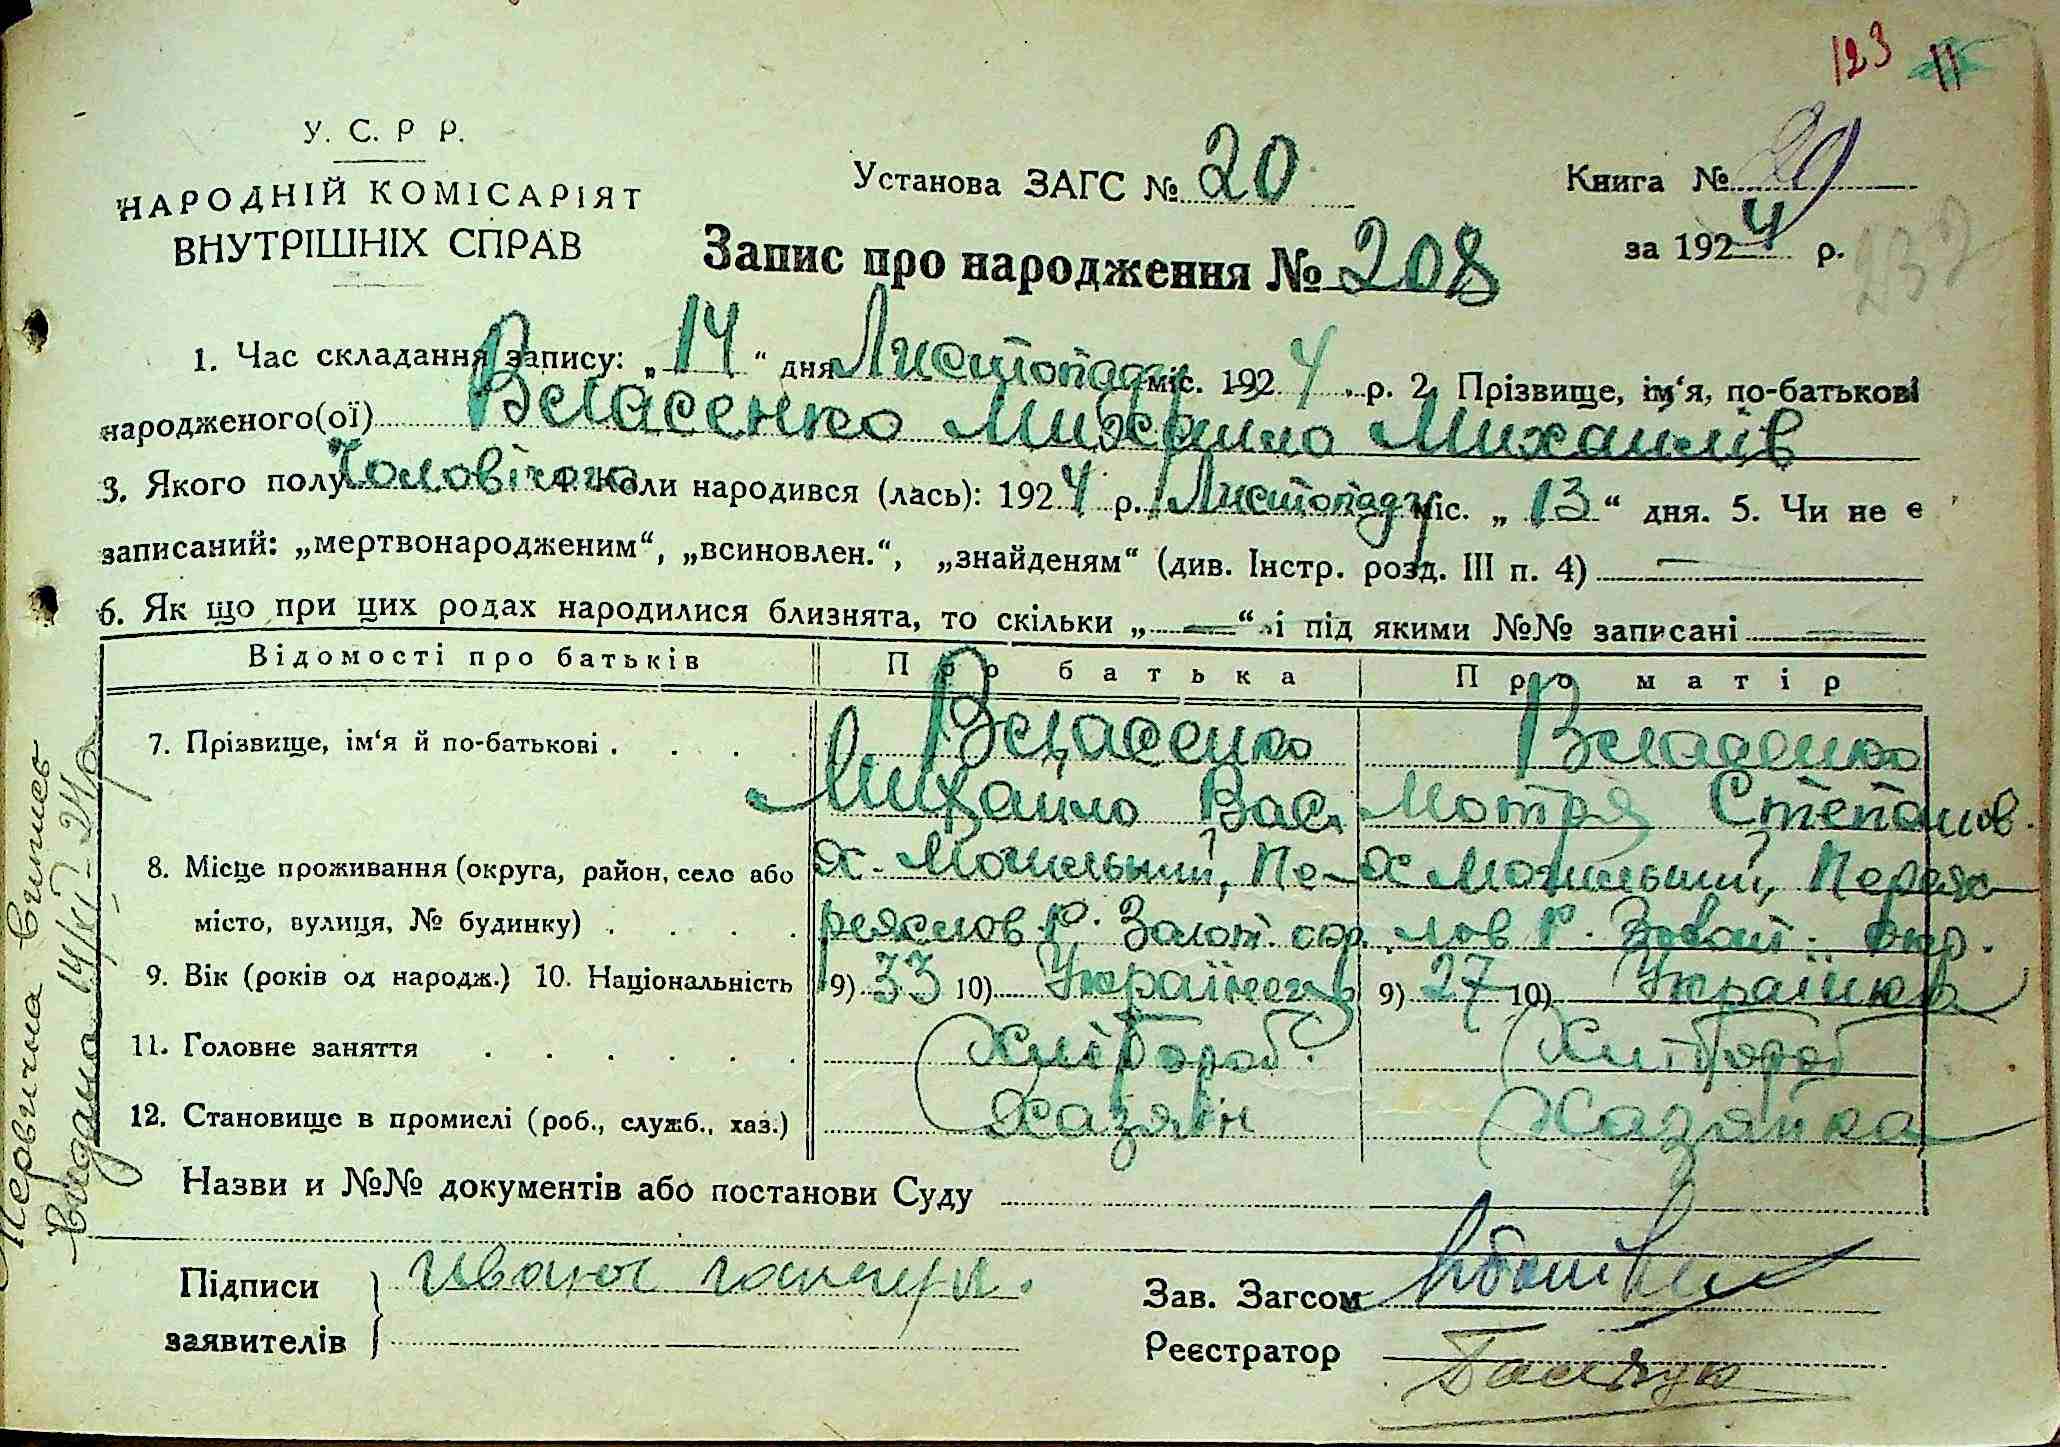 123 11
У. С. Р Р.
НАРОДНІЙ КОМІСАРІЯТ
ВНУТРІШНІХ СПРАВ
Установа ЗАГС № 20
Книга № 29
за 1924 р.
232
Запис про народження № 208
1. Час складання запису: „14“ дня Листопаду міс. 1924 р. 2. Прізвище, ім‘я, по-батькові
народженого(ої) Веласенко Михайло Михайлів
3. Якого полу Чоловічого 4. Коли народився (лась): 1924 р. Листопаду міс. „13“ дня. 5. Чи не є
записаний: „мертвонародженим“, „всиновлен.“, „знайденям“ (див. Інстр. розд. III п. 4) —
6. Як що при цих родах народилися близнята, то скільки „—“ і під якими №№ записані —
Відомості про батьків Про батька Про матір
7. Прізвище, ім‘я й по-батькові . . . . Веласенко Веласенко
Михайло Вас. Мотря Степанов.
8. Місце проживання (округа, район, село або х. Могильний, Пе- х Могильний, Переяс
місто, вулиця, № будинку) . . . . реяслов р. Золот. окр. лов р. Золот. окр.
9. Вік (років од народж.) 10. Національність 9) 33 10) Українець 9) 27 10) Українка
11. Головне заняття . . . . . . Хлібороб Хлібороб
12. Становище в промислі (роб., служб., хаз.) Хазяїн Хазяйка
Назви и №№ документів або постанови Суду
Підписи
заявителів
Зав. Загсом
Реєстратор
Первична випись
видана 14/XI-24р